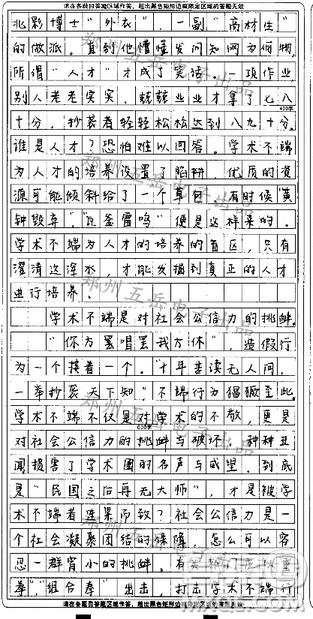 请在各题目答题区域作答，超出黑色矩形边框限定区域的答案无效
北影博士“外衣”，一副“高材生”
的做派，直到他懵懂发问知网为何物，
所谓“人才”才成了笑话。一项作业
别人老老实实、兢兢业业才拿了七八
400字
十分，抄袭者轻轻松松达到八九十分，
谁是人才？恐怕难以回答。学术不端
为人才的培养设置陷阱，优质的资
源可能倾斜给了一个草包，有时候“黄
钟毁弃，瓦釜雷鸣”便是这样来的。
学术不端为人才的培养的盲区，只有
澄清这洼水，才能发掘到真正的人才
进行培养。
学术不端是对社会公信力的挑衅。
“你方罢唱罢我方休”，造假行
为一个接着一个。“十年苦读无人问，
一举抄袭天下知”不端行为猖獗至此。
学术不端不仅是对学术的不敬，更是
对社会公信力的挑衅与破坏，种种丑
闻损害了学术圈的名声与威望，到底
是“民国之后再无大师”，才是被学
术不端者连累而致？社会公信力是一
个社会凝聚团结的保障，怎么可以容
忍一群宵小的挑衅。
拳“组合拳”出击，打击学术不端行
请在各题目答题区域作答，超出黑色矩形边框限定区域的答案无效
郑州五岳电子出品
郑州五岳电子出品
郑州五岳电子出品